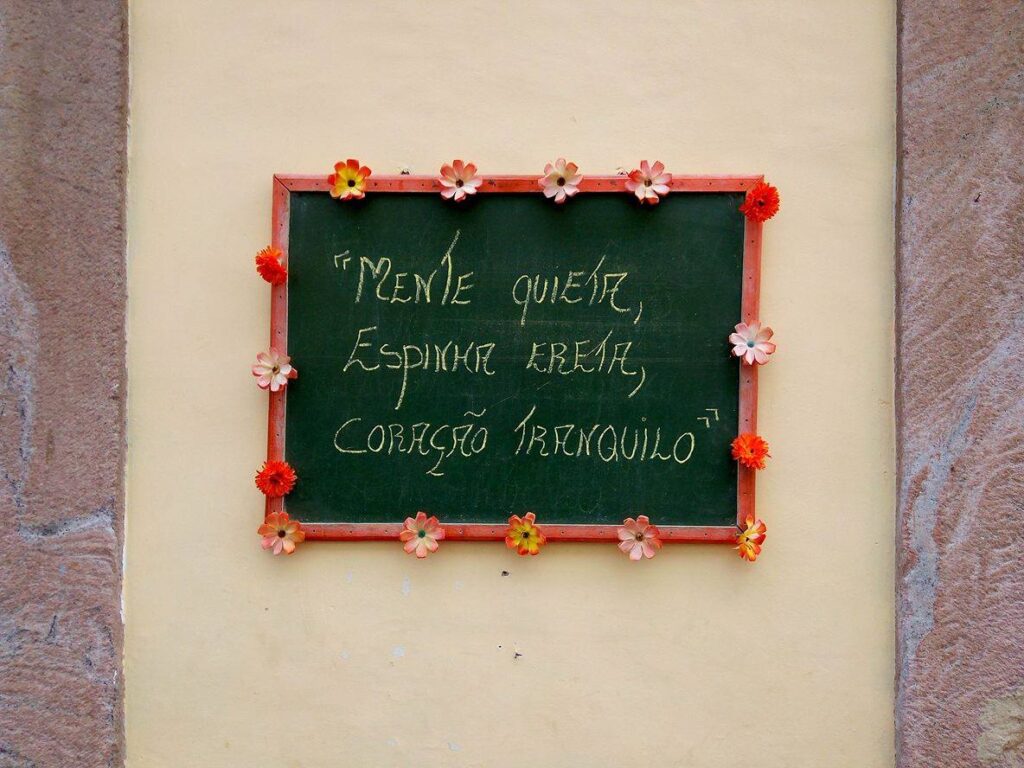 "Mente quieta,
Espinha ereta,
Coração tranquilo"